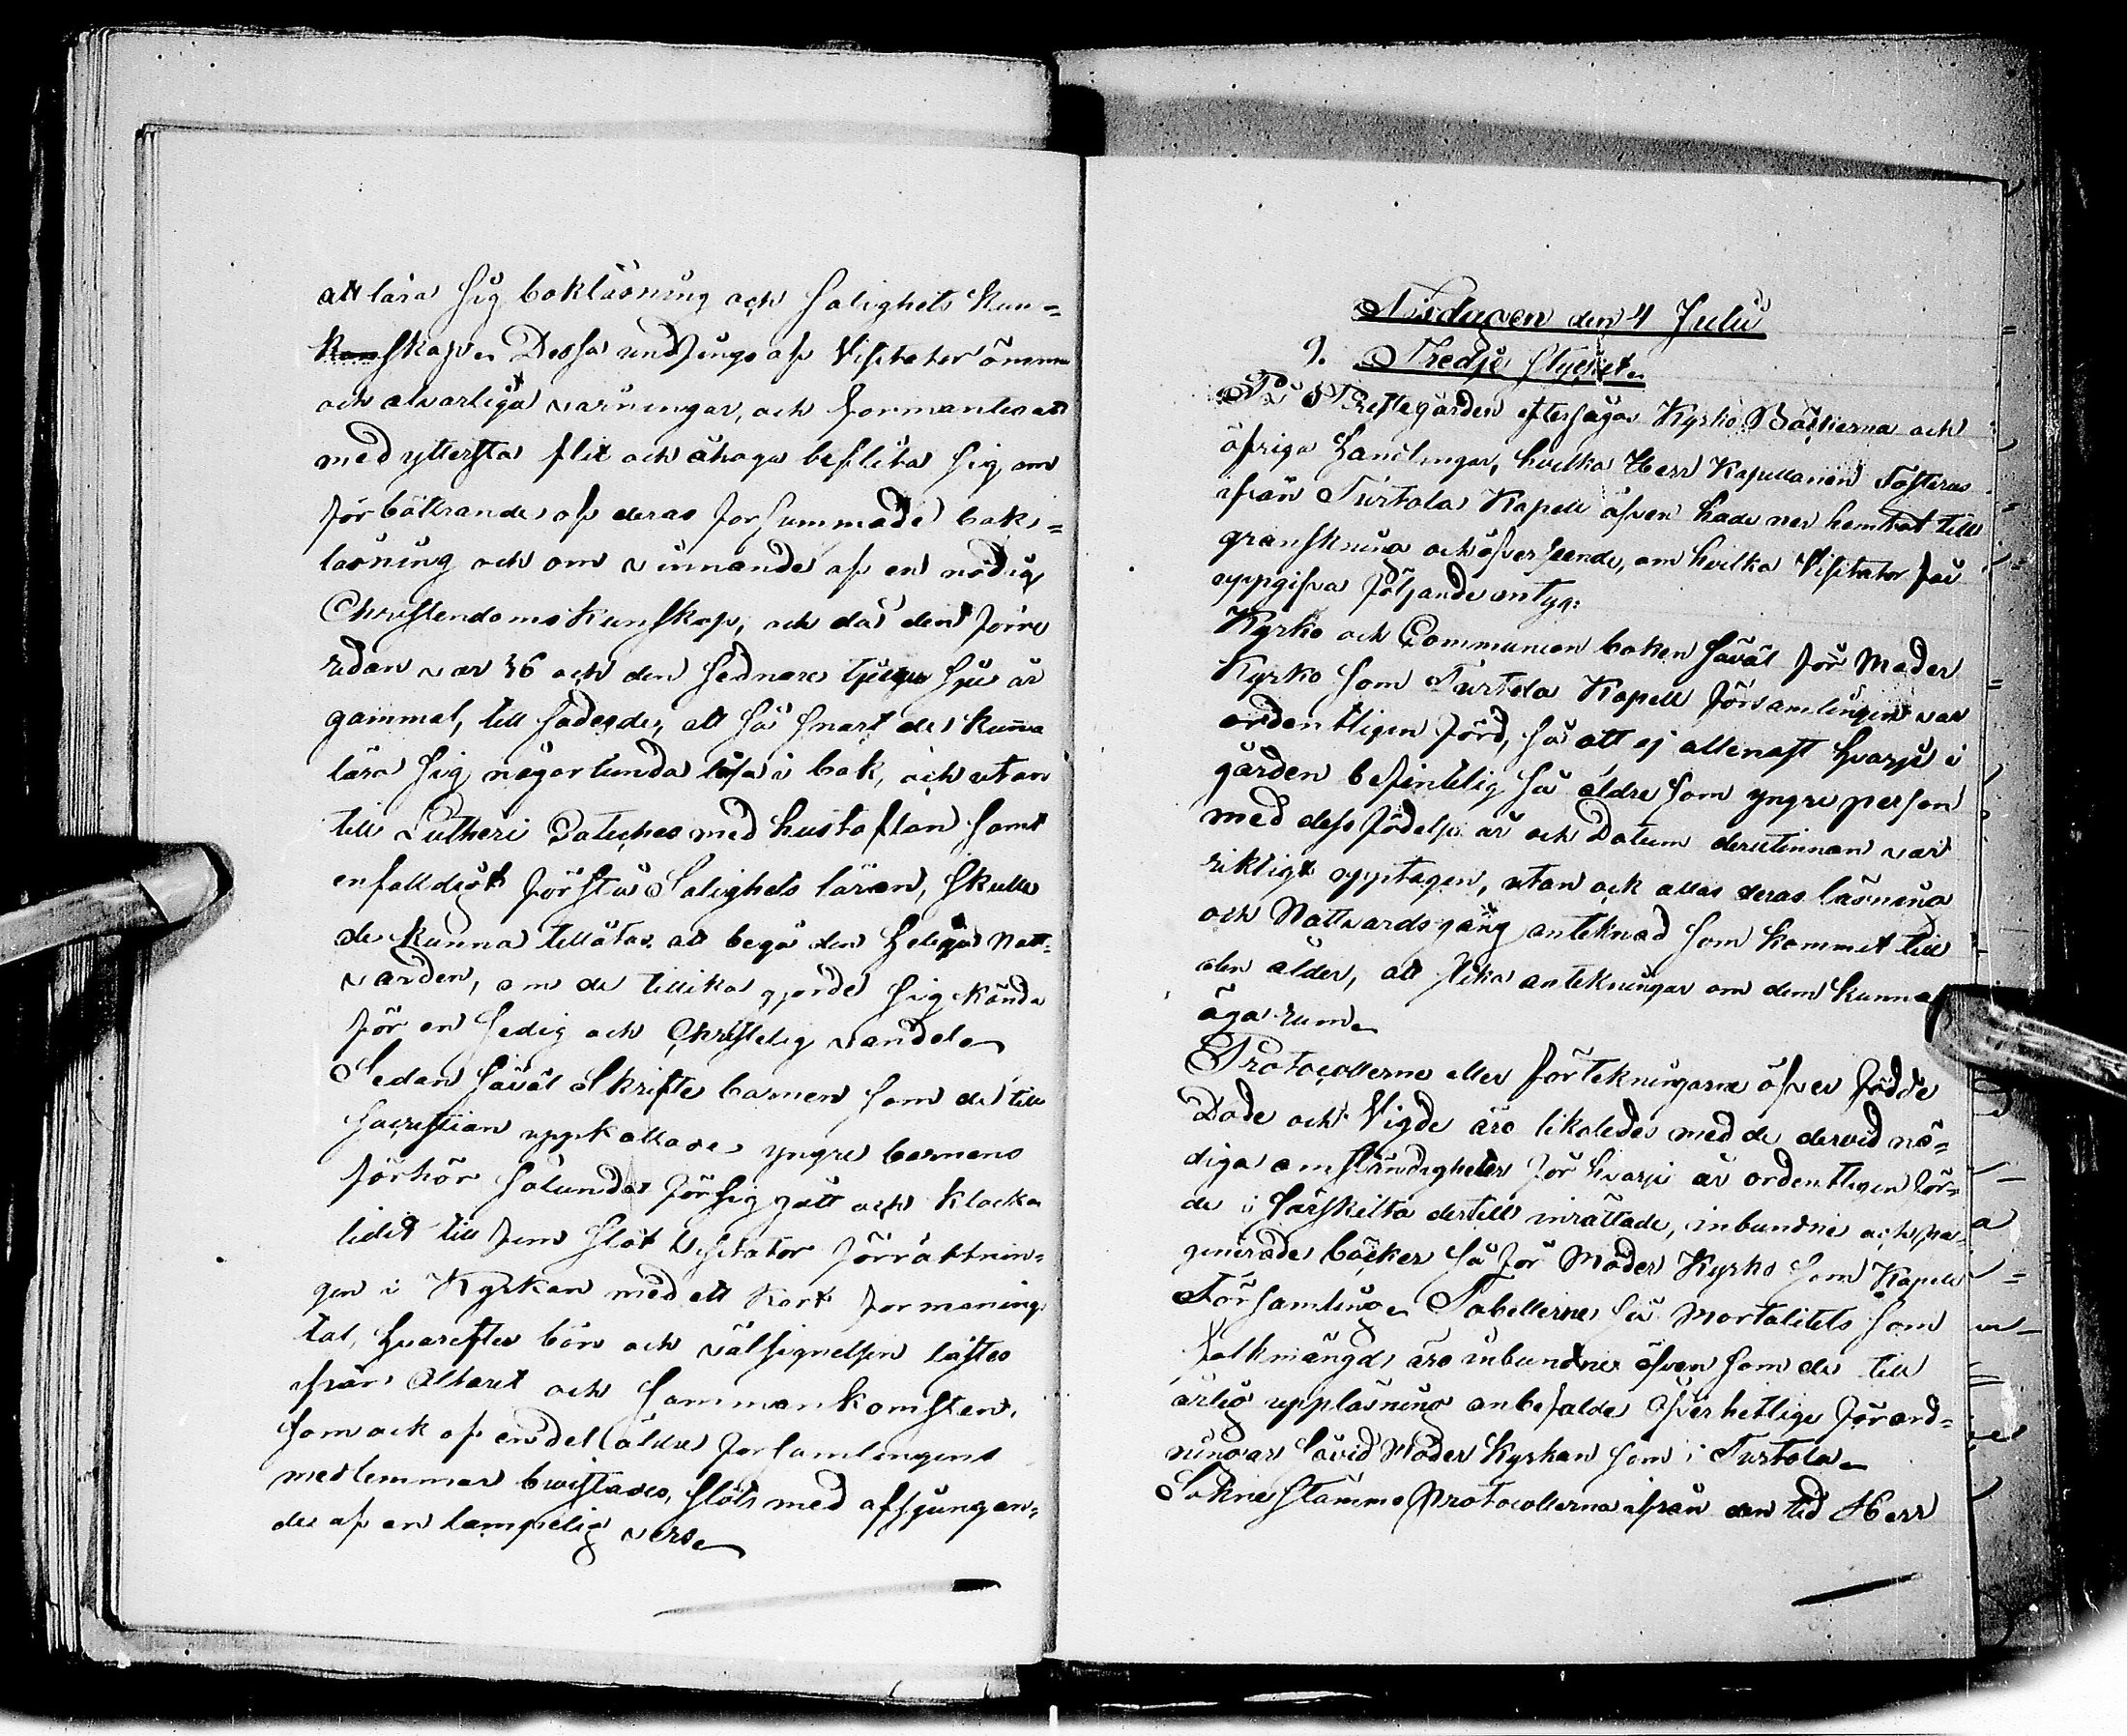 att lära sig bokläsning och salighets kun-
skap. Dessa undfingo af Visitator ömma
och alvarliga varningar, och formantes att
med yttersta flit och åhoga beflita sig om
förbättrande af deras forsummade bok-
läsning och om vinnande af en nödig
Christendoms kunskap, och då den förre
redan var 36 och den sednare tjugu sju år
gammal, till sades de, att så snart de kunna
lära sig någorlunda läsa i bok, och utan
till Lutheri Cateches med hustaflan samt
enfalldigt förstå Salighets läran, skulle
de kunna tillåtas att begå den Heliga Natt-
varden, om de tillika gjorde sig kända
för en sedig och Christelig vandel.
Sedan såväl Skrifte barnen som de till
Sacristian uppkallade yngre barnens
förhör sålunda försiggått och klockan
lidit till fem slöt Visitator förrättnin-
gen i Kyrkan med ett kort formanings
tal, hvarefter bön och välsignelsen lästes
ifrån Altaret och sammankomsten,
som ock af en del äldre forsamlingens
medlemmar bevistades, slöts med afsjungan-
de af en lämpelig vers.
Tisdagen den 4 Julii
9. Tredje stycket.
På Prestegården eftersågos Kyrko Böckerna och
öfriga handlingar, hvilka Herr Kapellanen Fosterus
ifrån Turtola Kapell äfven hade ner hemtat till
granskning och öfverseende, om hvilka Visitator får
uppgifva följande intyg:
Kyrko och Communion boken såväl för Moder
Kyrko som Turtola Kapell församlingen var
ordentligen förd, så att ej allenast hvarje i
gården befintelig så äldre som yngre person
med dess födelse år och Datum derutinnan var
riktigt upptagen, utan ock allas deras läsning
och Nattvardsgång anteknad som kommit till
den ålder, att slika antekningar om dem kunna
äga rum.
Protocollerne eller förtekningarne öfver födde
Dode och Vigde äro likaledes med de dervid nö-
diga omständigheter för hvarje år ordentligen för-
de i särskilta dertill inrättade, inbundne och pa-
ginerade böcker så för Moder Kyrko som Kapell
Församling. Tabellerne så Mortalitets som
folkmängds äro inbundne äfven som de till
årlig uppläsning anbefalde öfverhetlige förord-
ningar såvid Moder Kyrkan som i Turtola.
Sokne stämmo Protocollerna ifrån den tid Herr